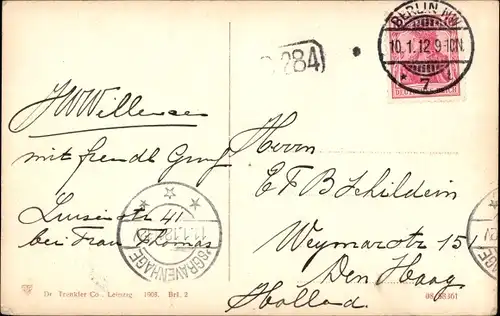 BERLIN NW
10.1.12 9-10N.
* 7 *
DEUTSCHES REICH
284
JW Willemsen
mit freundl Gruß
Luisenstr 41
bei Frau Thomas
Herrn
E F B Schildein
Weymarstr 151
Den Haag
Holland
'SGRAVENHAGE
11.1.12
Dr. Trenkler Co., Leipzig. 1908. Brl. 2